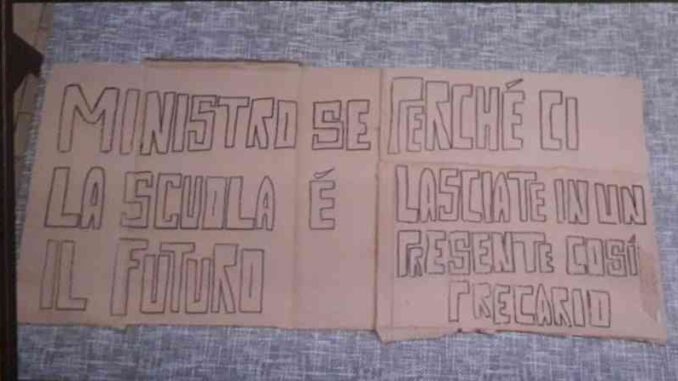 MINISTRO SE
LA SCUOLA É
IL FUTURO
PERCHÉ CI
LASCIATE IN UN
PRESENTE COSÍ
PRECARIO